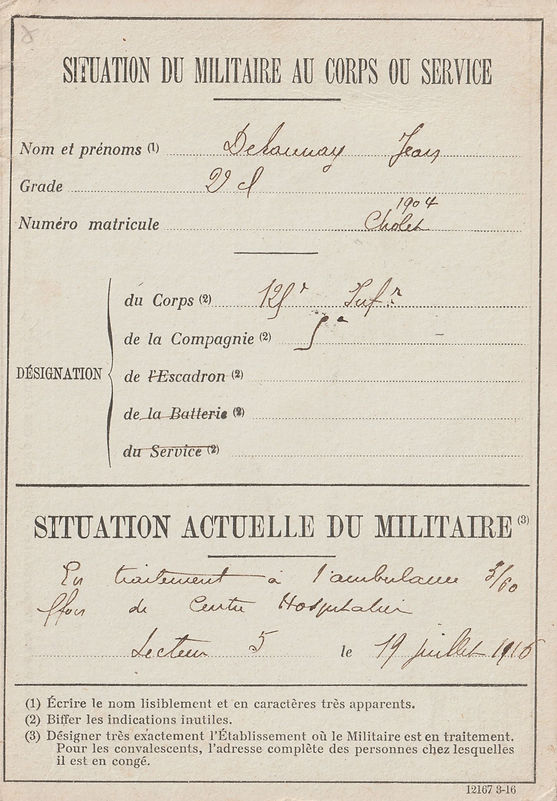 SITUATION DU MILITAIRE AU CORPS OU SERVICE
Nom et prénoms (1) Delaunay Jean
Grade 2e cl
1904
Numéro matricule Cholet
DÉSIGNATION
du Corps (2) 125e Infie
de la Compagnie (2) 5e
de l'Escadron (2)
de la Batterie (2)
du Service (2)
SITUATION ACTUELLE DU MILITAIRE (3)
En traitement à l'ambulance 3/60
de Centre Hospitalier
Secteur 5 le 19 juillet 1916
(1) Écrire le nom lisiblement et en caractères très apparents.
(2) Biffer les indications inutiles.
(3) Désigner très exactement l'Établissement où le Militaire est en traitement.
Pour les convalescents, l'adresse complète des personnes chez lesquelles
il est en congé.
12167 3-16